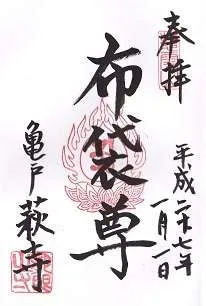 奉拝
平成二十七年
一月一日
布袋尊
亀戸萩寺